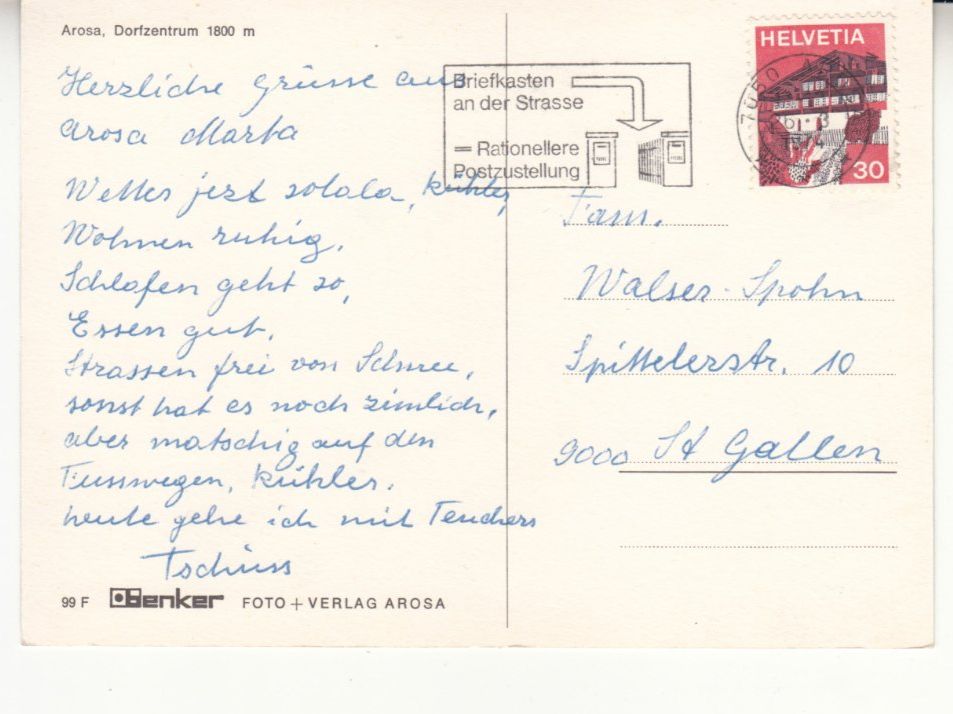 Arosa, Dorfzentrum 1800 m
Herzliche Grüsse aus
Arosa Marta
Wetter jezt solala, kühler,
Wohnen ruhig,
Schlafen geht so,
Essen gut,
Strassen frei von Schnee,
sonst hat es noch zimlich,
aber matschig auf den
Fusswegen, kühler.
heute gehe ich mit Teuchers
Tschüss
99 F Benker FOTO + VERLAG AROSA
Briefkasten
an der Strasse
= Rationellere
Postzustellung
HELVETIA
30
7050 AROSA
Fam.
Walser-Spohn
Spittelerstr. 10
9000 St Gallen